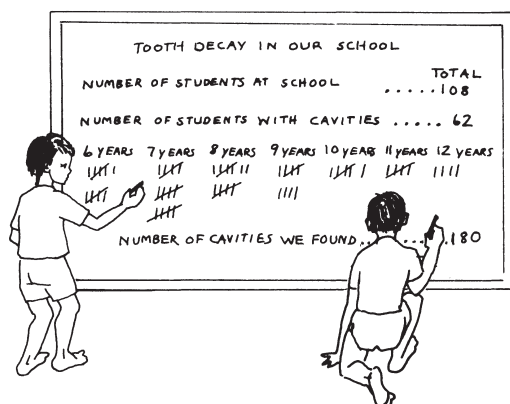 TOOTH DECAY IN OUR SCHOOL
TOTAL
NUMBER OF STUDENTS AT SCHOOL .....108
NUMBER OF STUDENTS WITH CAVITIES ..... 62
6 YEARS 7 YEARS 8 YEARS 9 YEARS 10 YEARS 11 YEARS 12 YEARS
NUMBER OF CAVITIES WE FOUND.......180